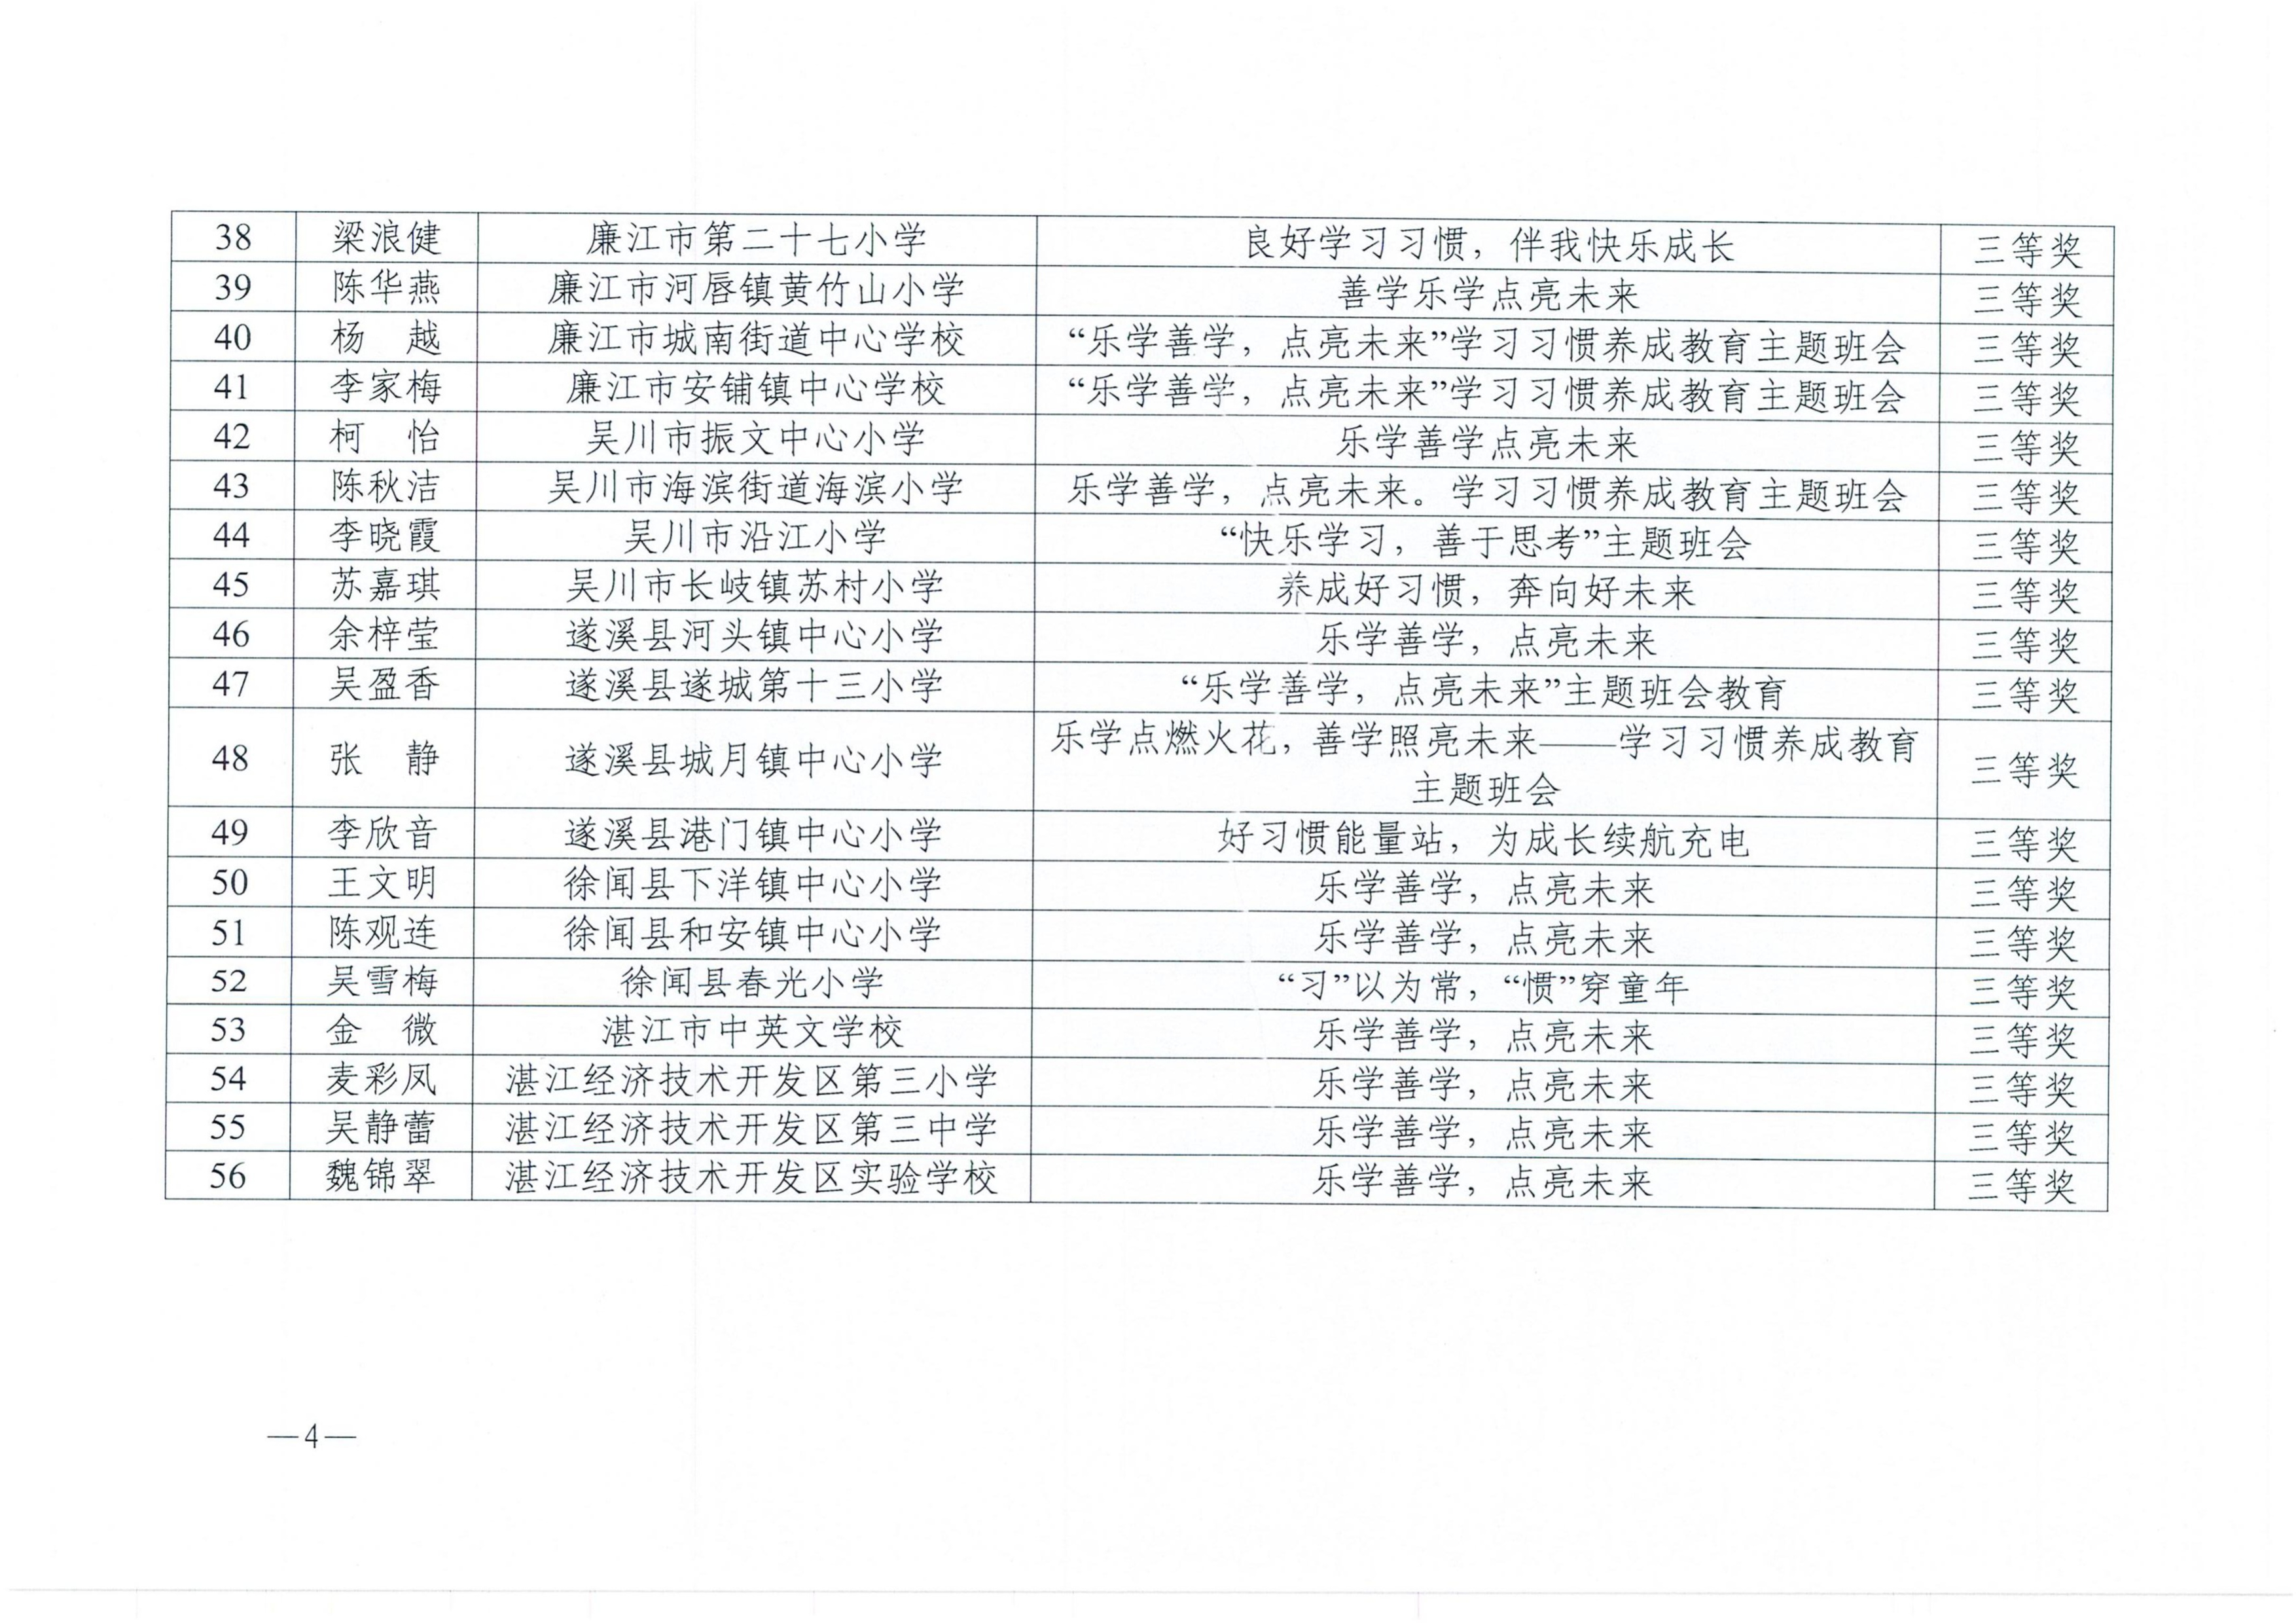 38 梁浪健 廉江市第二十七小学 良好学习习惯，伴我快乐成长 三等奖
39 陈华燕 廉江市河唇镇黄竹山小学 善学乐学点亮未来 三等奖
40 杨　越 廉江市城南街道中心学校 “乐学善学，点亮未来”学习习惯养成教育主题班会 三等奖
41 李家梅 廉江市安铺镇中心学校 “乐学善学，点亮未来”学习习惯养成教育主题班会 三等奖
42 柯　怡 吴川市振文中心小学 乐学善学点亮未来 三等奖
43 陈秋洁 吴川市海滨街道海滨小学 乐学善学，点亮未来。学习习惯养成教育主题班会 三等奖
44 李晓霞 吴川市沿江小学 “快乐学习，善于思考”主题班会 三等奖
45 苏嘉琪 吴川市长岐镇苏村小学 养成好习惯，奔向好未来 三等奖
46 余梓莹 遂溪县河头镇中心小学 乐学善学，点亮未来 三等奖
47 吴盈香 遂溪县遂城第十三小学 “乐学善学，点亮未来”主题班会教育 三等奖
48 张　静 遂溪县城月镇中心小学 乐学点燃火花，善学照亮未来——学习习惯养成教育
主题班会 三等奖
49 李欣音 遂溪县港门镇中心小学 好习惯能量站，为成长续航充电 三等奖
50 王文明 徐闻县下洋镇中心小学 乐学善学，点亮未来 三等奖
51 陈观连 徐闻县和安镇中心小学 乐学善学，点亮未来 三等奖
52 吴雪梅 徐闻县春光小学 “习”以为常，“惯”穿童年 三等奖
53 金　微 湛江市中英文学校 乐学善学，点亮未来 三等奖
54 麦彩凤 湛江经济技术开发区第三小学 乐学善学，点亮未来 三等奖
55 吴静蕾 湛江经济技术开发区第三中学 乐学善学，点亮未来 三等奖
56 魏锦翠 湛江经济技术开发区实验学校 乐学善学，点亮未来 三等奖
—4—